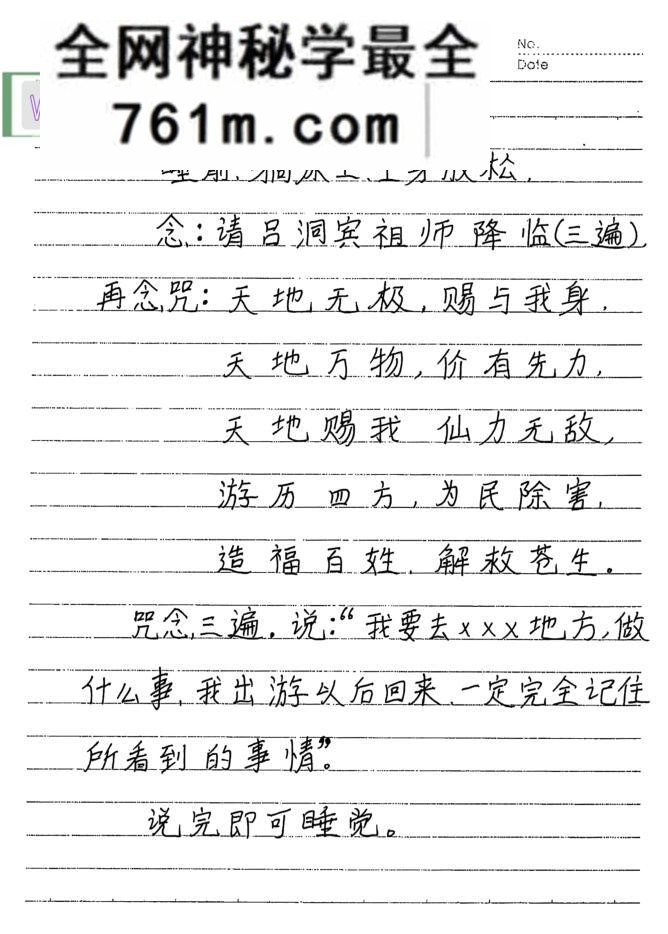 全网神秘学最全
No.
Date
761m.com
松，
念：请吕洞宾祖师降临(三遍)，
再念咒：天地无极，赐与我身，
天地万物，价有先力，
天地赐我 仙力无敌，
游历四方，为民除害，
造福百姓，解救苍生。
咒念三遍。说：“我要去xxx地方，做
什么事，我出游以后回来，一定完全记住
所看到的事情”。
说完即可睡觉。